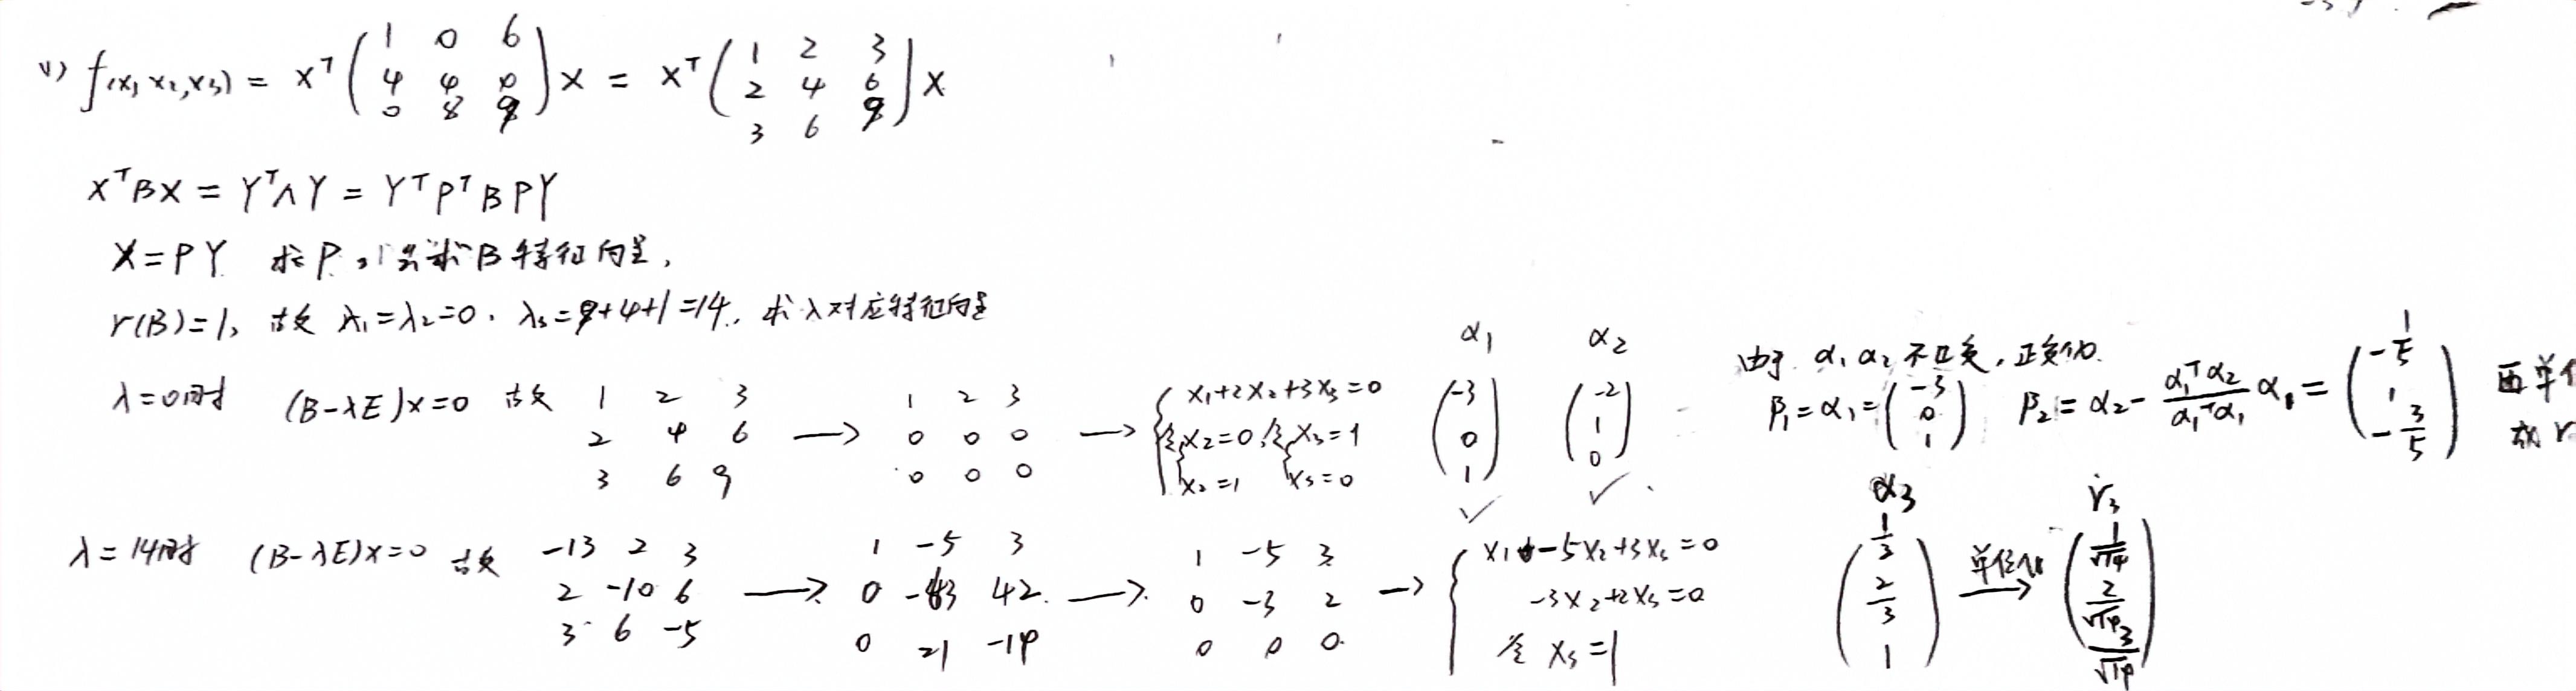 (1) f(x₁,x₂,x₃) = X^T \begin{pmatrix} 1 & 0 & 6 \\ 4 & 4 & 0 \\ 0 & 8 & 9 \end{pmatrix} X = X^T \begin{pmatrix} 1 & 2 & 3 \\ 2 & 4 & 6 \\ 3 & 6 & 9 \end{pmatrix} X
X^T B X = Y^T Λ Y = Y^T P^T B P Y
X = PY 求P, 求B特征向量,
r(B)=1, 故 λ₁=λ₂=0, λ₃=9+4+1=14, 求λ对应特征向量
λ=0时 (B-λE)x=0 故 \begin{matrix} 1 & 2 & 3 \\ 2 & 4 & 6 \\ 3 & 6 & 9 \end{matrix} → \begin{matrix} 1 & 2 & 3 \\ 0 & 0 & 0 \\ 0 & 0 & 0 \end{matrix} → \begin{cases} x₁+2x₂+3x₃=0 \\ 令 \begin{cases} x₂=0 \\ x₃=1 \end{cases} 令 \begin{cases} x₃=1 \\ x₃=0 \end{cases} \end{cases} α₁ \begin{pmatrix} -3 \\ 0 \\ 1 \end{pmatrix} ✓ α₂ \begin{pmatrix} -2 \\ 1 \\ 0 \end{pmatrix} ✓
由于 α₁ α₂ 不正交, 正交化.
β₁=α₁= \begin{pmatrix} -3 \\ 0 \\ 1 \end{pmatrix} β₂=α₂- \frac{α₁^T α₂}{α₁^T α₁} α₁ = \begin{pmatrix} -\frac{1}{5} \\ 1 \\ -\frac{3}{5} \end{pmatrix} 再单位
故 r
λ=14时 (B-λE)x=0 故 \begin{matrix} -13 & 2 & 3 \\ 2 & -10 & 6 \\ 3 & 6 & -5 \end{matrix} → \begin{matrix} 1 & -5 & 3 \\ 0 & -63 & 42 \\ 0 & 21 & -14 \end{matrix} → \begin{matrix} 1 & -5 & 3 \\ 0 & -3 & 2 \\ 0 & 0 & 0 \end{matrix} → \begin{cases} x₁-5x₂+3x₃=0 \\ -3x₂+2x₃=0 \\ 令 x₃=1 \end{cases} α₃ \begin{pmatrix} \frac{1}{3} \\ \frac{2}{3} \\ 1 \end{pmatrix} \xrightarrow{单位化} r₃ \begin{pmatrix} \frac{1}{\sqrt{14}} \\ \frac{2}{\sqrt{14}} \\ \frac{3}{\sqrt{14}} \end{pmatrix}